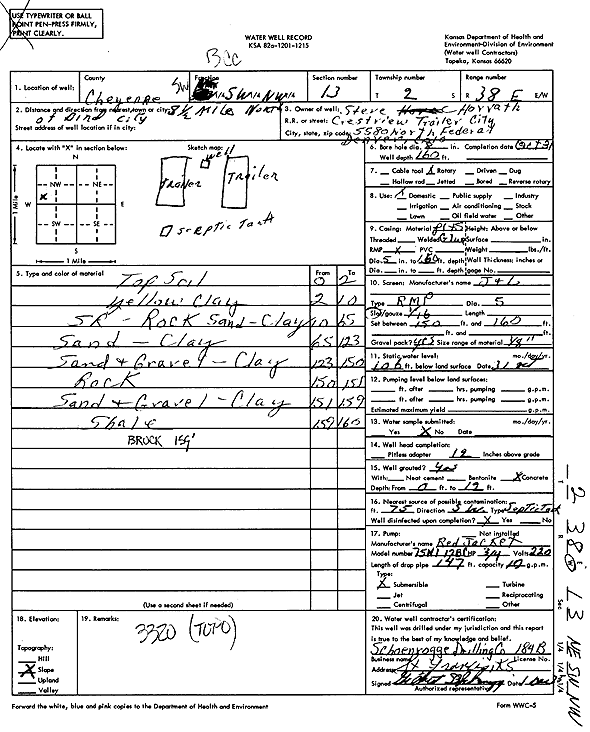 USE TYPEWRITER OR BALL
POINT PEN-PRESS FIRMLY,
PRINT CLEARLY.
WATER WELL RECORD
KSA 82a-1201-1215
Kansas Department of Health and
Environment-Division of Environment
(Water well Contractors)
Topeka, Kansas 66620
BCC
1. Location of well:
County
Cheyenne
Fraction
SW SW 1/4 NW 1/4
Section number
13
Township number
T 2 S
Range number
R 38 E E/W
2. Distance and direction from nearest town or city: 8 1/2 Mile North
of Bird City
Street address of well location if in city:
3. Owner of well: Steve Horvath
R.R. or street: Crestview Trailer City
City, state, zip code: 5580 North Federal
Denver, Colo
4. Locate with "X" in section below:
N
NW NE
W X E
SW SE
S
1 Mile
1 Mile
Sketch map:
well
Trailer Trailer
sceptic tank
5. Type and color of material
From To
Top Soil 0 2
Yellow Clay 2 10
SK - Rock Sand-Clay 10 65
Sand - Clay 65 123
Sand & Gravel - Clay 123 150
Rock 150 151
Sand & Gravel - Clay 151 159
Shale 159 160
BROCK 159'
(Use a second sheet if needed)
6. Bore hole dia. 8 in. Completion date Oct 31
Well depth 160 ft.
7. Cable tool X Rotary Driven Dug
Hollow rod Jetted Bored Reverse rotary
8. Use: X Domestic Public supply Industry
Irrigation Air conditioning Stock
Lawn Oil field water Other
9. Casing: Material Height: Above or below
Threaded Welded Glue Surface in.
RMP X PVC Weight lbs./ft.
Dia. 5 in. to 160 ft. depth Wall Thickness: inches or
Dia. in. to ft. depth gage No.
10. Screen: Manufacturer's name J+L
Type RMP Dia. 5
Slot/gauze 1/16 Length
Set between 150 ft. and 160 ft.
ft. and ft.
Gravel pack? yes Size range of material 1/8"
11. Static water level: mo./day/yr.
106 ft. below land surface Date 31 Oct
12. Pumping level below land surfaces:
ft. after hrs. pumping g.p.m.
ft. after hrs. pumping g.p.m.
Estimated maximum yield g.p.m.
13. Water sample submitted: mo./day/yr.
Yes X No Date
14. Well head completion:
Pitless adapter 12 Inches above grade
15. Well grouted? yes
With: Neat cement Bentonite X Concrete
Depth: From 0 ft. to 12 ft.
16. Nearest source of possible contamination:
ft. 75 Direction SW Type Septic Tank
Well disinfected upon completion? X Yes No
17. Pump: Not installed
Manufacturer's name Red Jacket
Model number HP 3/4 Volts 220
Length of drop pipe 147 ft. capacity 10 g.p.m.
Type:
X Submersible Turbine
Jet Reciprocating
Centrifugal Other
18. Elevation:
Topography:
Hill
X Slope
Upland
Valley
19. Remarks:
3320 (TOPO)
20. Water well contractor's certification:
This well was drilled under my jurisdiction and this report
is true to the best of my knowledge and belief.
Schoenrogge Drilling Co 184B
Business name License No.
Address St Francis KS
Signed Date
Authorized representative
Forward the white, blue and pink copies to the Department of Health and Environment
Form WWC-5
T 2 R 38 W Sec 13 NE SW NW
1/4 1/4 1/4